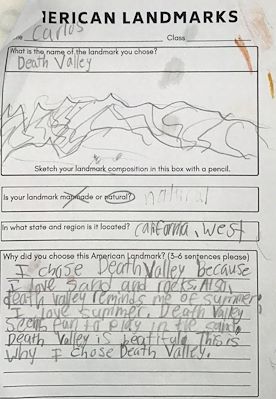 MERICAN LANDMARKS
Carlos Class
What is the name of the landmark you chose?
Death Valley
Sketch your landmark composition in this box with a pencil.
Is your landmark manmade or natural? natural
In what state and region is it located? California, west
Why did you choose this American Landmark? (3-6 sentences please)
I chose Death Valley because
I love sand and rocks. Also,
death valley reminds me of summer.
I love summer. Death Valley
seems fun to play in the sand.
Death Valley is beatiful. This is
why I chose Death Valley.